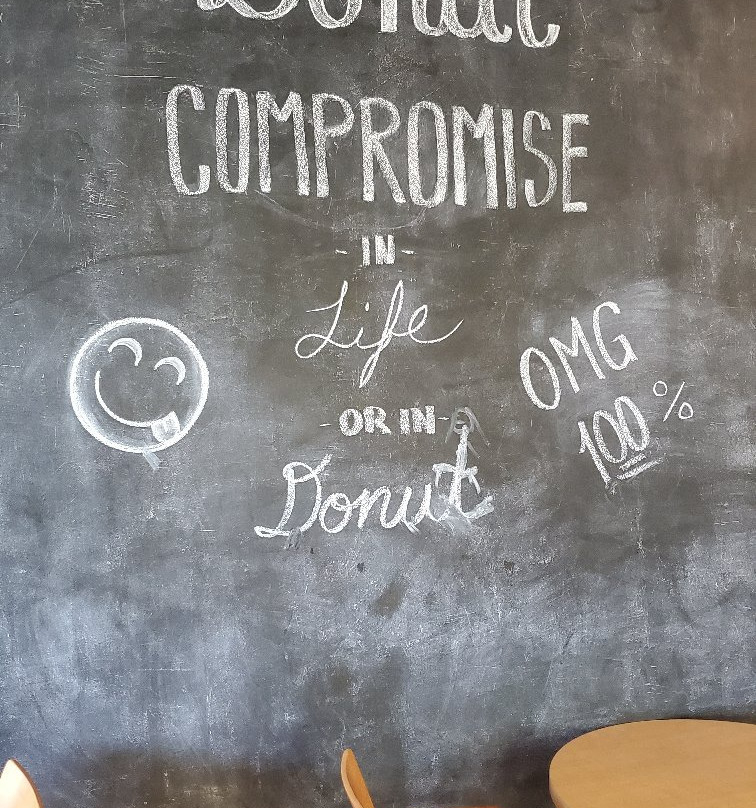 Donut
COMPROMISE
- IN -
Life
- OR IN -
Donut
OMG
100%